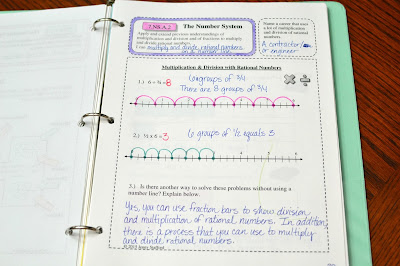 7.NS.A.2
The Number System
Apply and extend previous understandings of
multiplication and division and of fractions to multiply
and divide rational numbers.
I can multiply and divide rational numbers
on a number line.
Name a career that uses
a lot of multiplication
and division of rational
numbers.
A contractor
or engineer
Multiplication & Division with Rational Numbers
1.) 6 ÷ ¾ = 8
6 groups of 3/4
There are 8 groups of 3/4
2.) ½ x 6 = 3
6 groups of ½ equals 3
3.) Is there another way to solve these problems without using a
number line? Explain below.
Yes, you can use fraction bars to show division
and multiplication of rational numbers. In addition,
there is a process that you can use to multiply
and divide rational numbers.